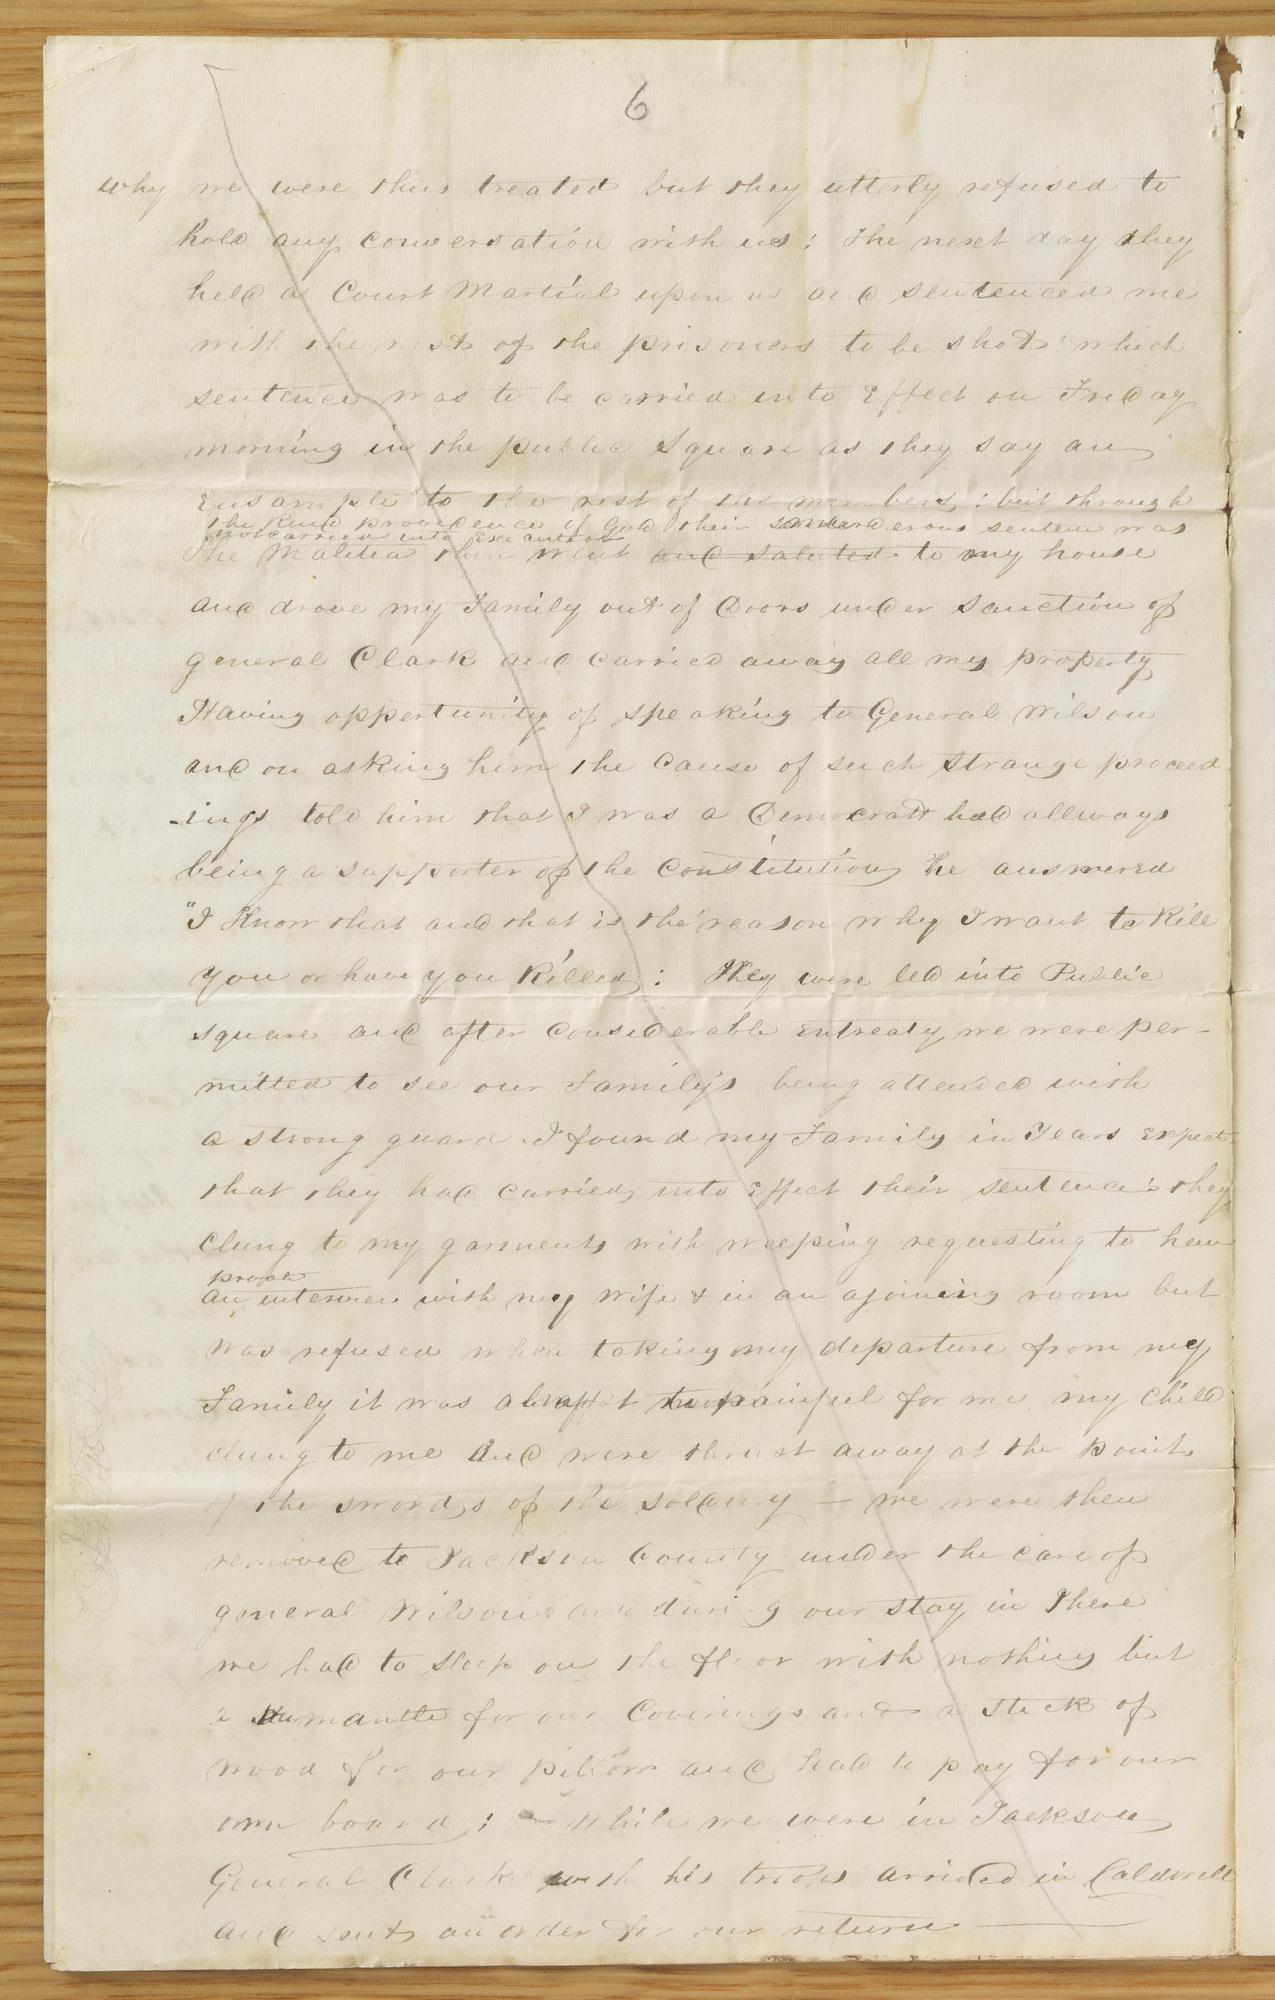 6
why we were thus treated but they utterly refused to
hold any conversation with us: The next day they
held a Court Martial upon us and sentenced me
with the rest of the prisoners to be shot: which
sentence was to be carried into Effect on Friday
morning in the public Square as they say an
Ensample to the rest of the members: but through
the kind providence of God their murderous sentence was
not carried into Executeon
The Malitia then went and saluted to my house
and drove my Family out of Doors under sanction of
general Clark and carried away all my property
Having oppertunity of speaking to General Wilson
and on asking him the Cause of such strange proceed
-ings told him that I was a Democratt had allways
being a supporter of the Constitution he answered
"I Know that and that is the reason why I want to Kill
you or have you Killed: They were led into Public
square and after considerable entreaty we were per-
mitted to see our Family's being attended with
a strong guard. I found my Family in Tears expect
that they had carried into Effect their sentence: they
clung to my garments with weeping requesting to have
privat
an interview with my wife & in an ajoining room but
was refused when taking my departure from my
Family it was almost too painful for me, my Child
clung to me and were thrust away at the point
of the swords of the soldiery — we were then
removed to Jackson County under the care of
general Wilson: and during our stay in There
we had to sleep on the floor with nothing but
a mantle for our Coverings and a stick of
wood for our pillow and had to pay for our
own board; — While we were in Jackson
General Clark with his troops arrived in Caldwell
and sent an order for our return